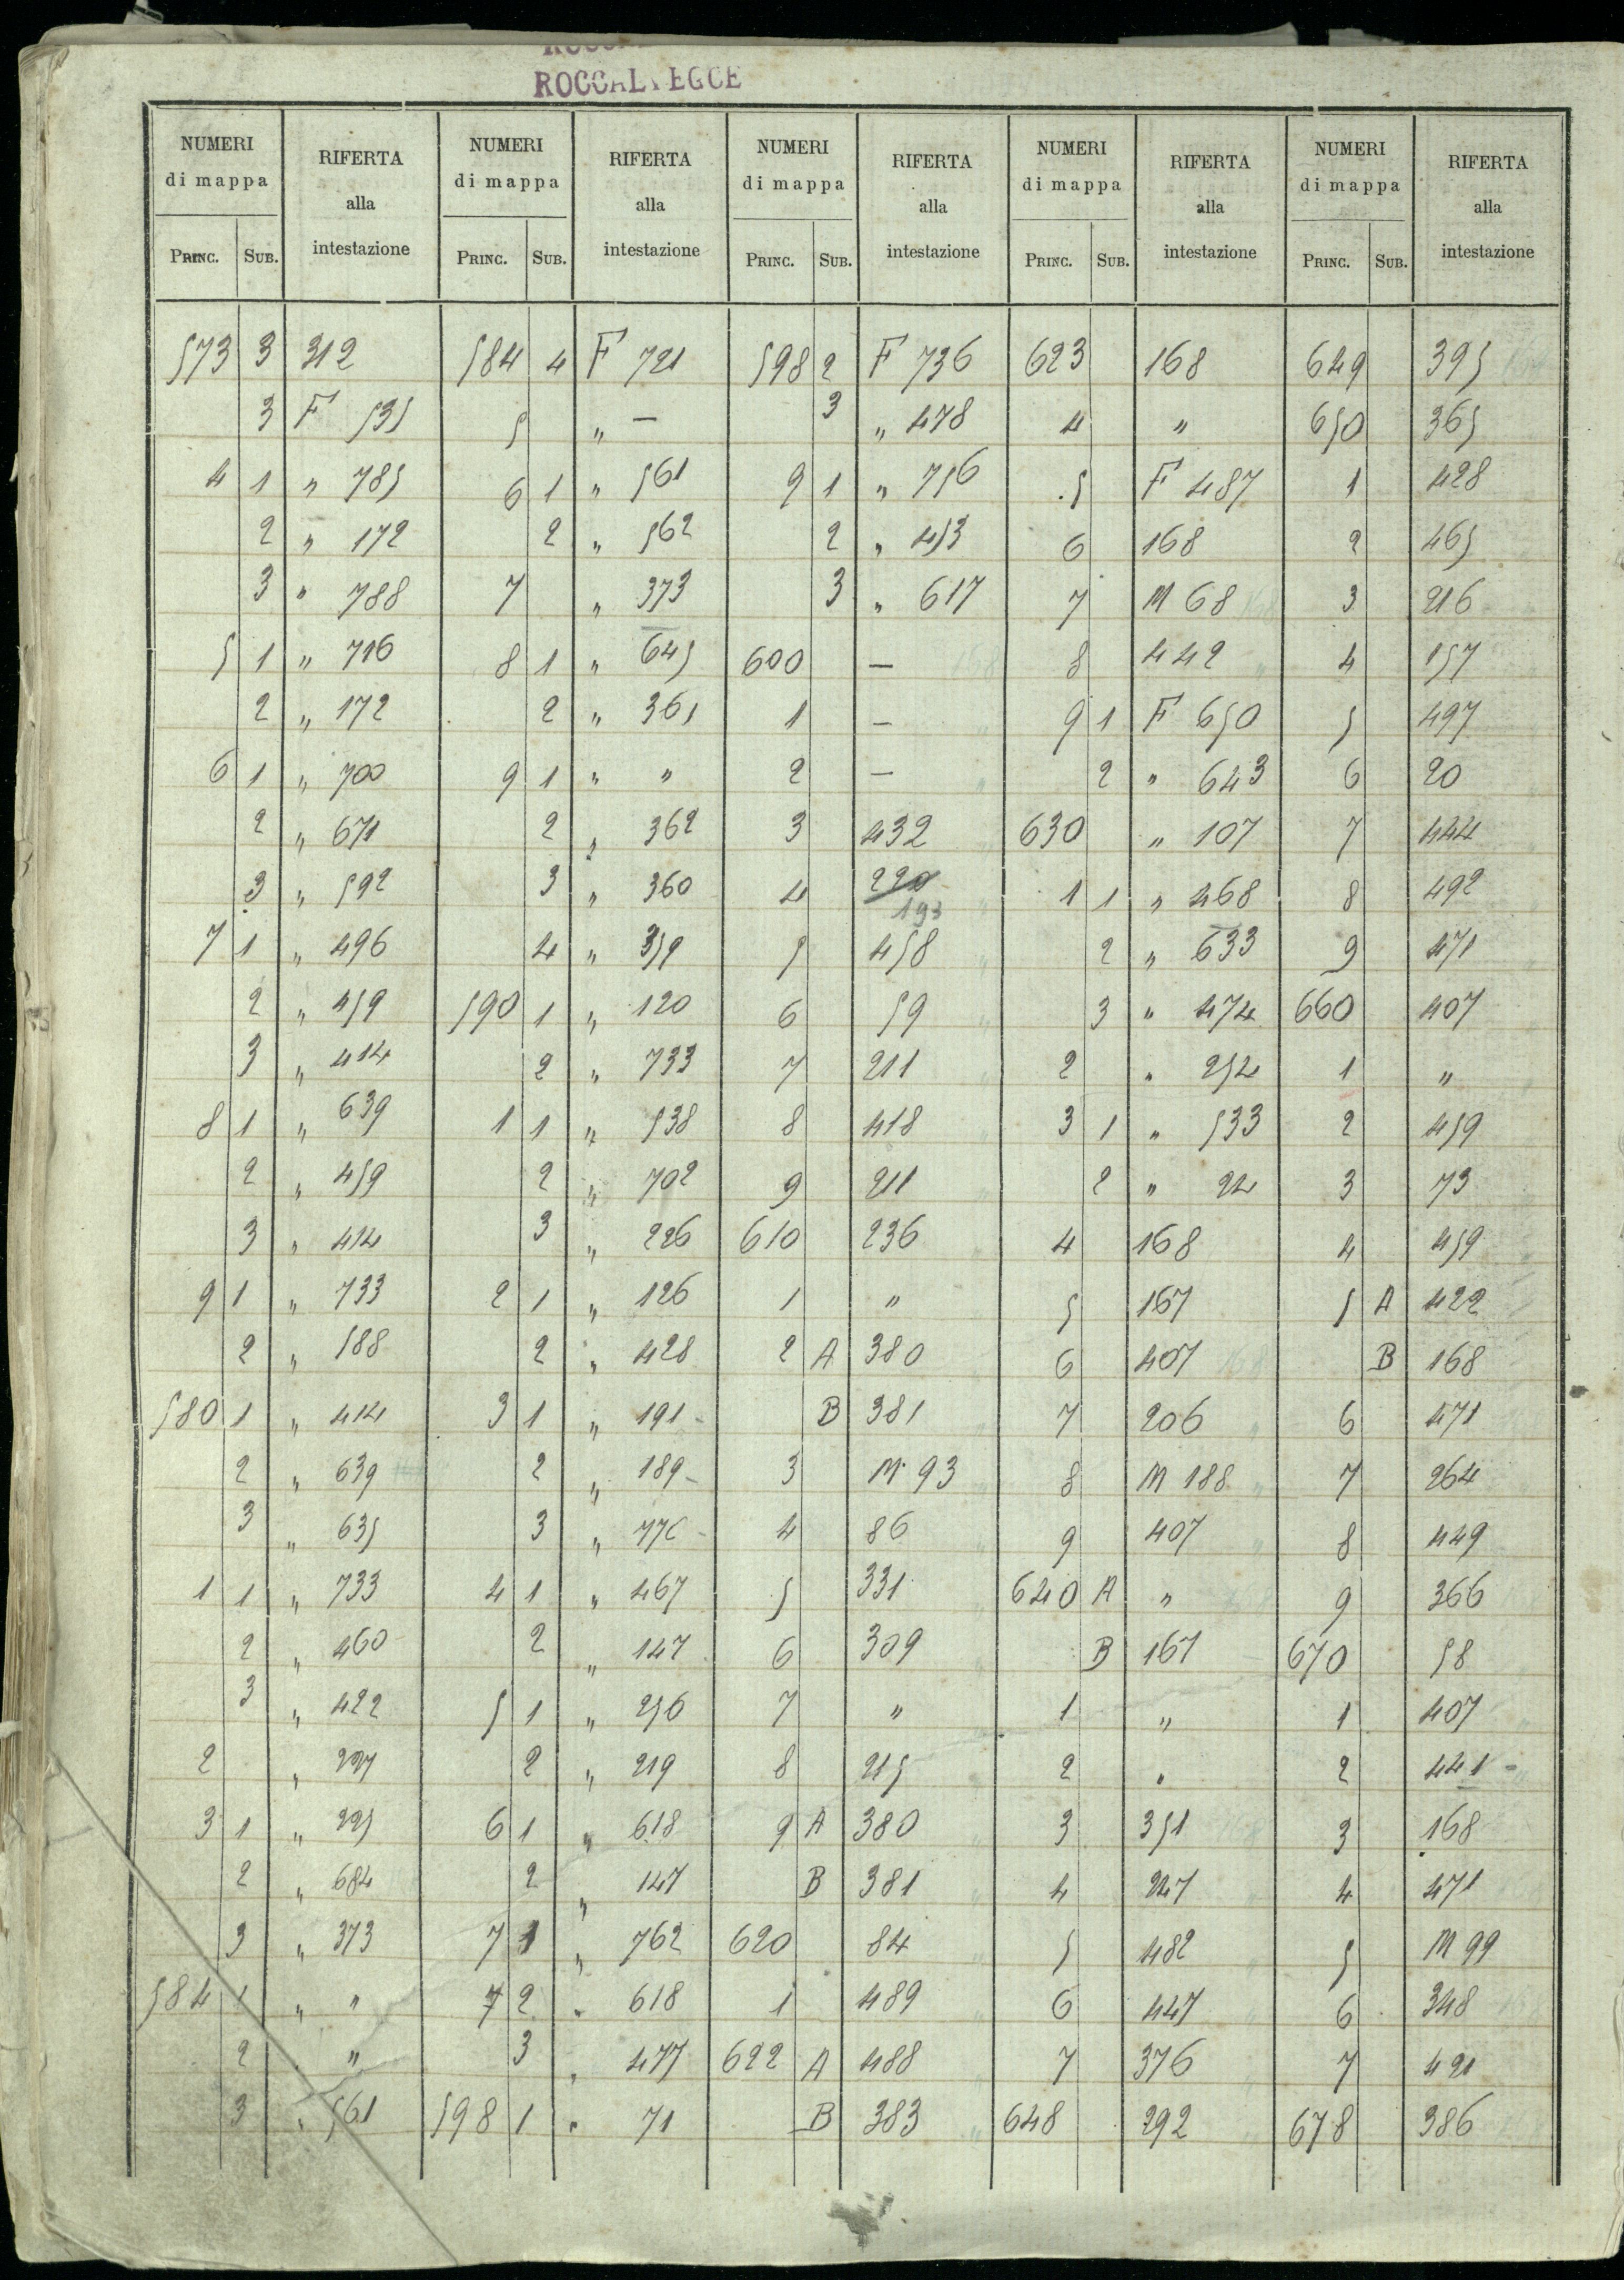 ROCCALVEGCE
NUMERI di mappa | RIFERTA alla intestazione | NUMERI di mappa | RIFERTA alla intestazione | NUMERI di mappa | RIFERTA alla intestazione | NUMERI di mappa | RIFERTA alla intestazione | NUMERI di mappa | RIFERTA alla intestazione
PRINC. | SUB. | PRINC. | SUB. | PRINC. | SUB. | PRINC. | SUB. | PRINC. | SUB.
573 3 312 584 4 F 721 598 2 F 736 623 168 649 395
3 F 535 5 „ — 3 „ 478 4 „ 650 365
4 1 „ 785 6 1 „ 561 9 1 „ 756 5 F 487 1 428
2 „ 172 2 „ 562 2 „ 453 6 168 2 465
3 „ 788 7 „ 373 3 „ 617 7 M 68 3 216
5 1 „ 716 8 1 „ 645 600 — 8 442 4 157
2 „ 172 2 „ 361 1 — 9 1 F 650 5 497
6 1 „ 700 9 1 „ „ 2 — 2 „ 643 6 20
2 „ 671 2 „ 362 3 432 630 „ 107 7 444
3 „ 592 3 „ 360 4 220 193 1 1 „ 468 8 492
7 1 „ 496 4 „ 359 5 458 2 „ 633 9 471
2 „ 459 590 1 „ 120 6 59 3 „ 474 660 407
3 „ 414 2 „ 733 7 211 2 „ 254 1 „
8 1 „ 639 1 1 „ 538 8 418 3 1 „ 533 2 459
2 „ 459 2 „ 702 9 211 2 „ 24 3 73
3 „ 414 3 „ 226 610 236 4 168 4 459
9 1 „ 733 2 1 „ 126 1 „ 5 167 5 A 422
2 „ 588 2 „ 428 2 A 380 6 407 B 168
580 1 „ 414 3 1 „ 191 - B 381 7 206 6 471
2 „ 639 2 „ 189 - 3 M 93 8 M 188 7 264
3 „ 635 3 „ 776 - 4 86 9 407 8 449
1 1 „ 733 4 1 „ 467 5 331 640 A „ 9 366
2 „ 460 2 „ 147 6 309 B 167 670 58
3 „ 422 5 1 „ 256 7 „ 1 „ 1 407
2 „ 227 2 „ 219 8 215 2 „ 2 441 -
3 1 „ 225 6 1 „ 618 9 A 380 3 351 3 168
2 „ 684 2 „ 147 B 381 4 247 4 471
3 „ 373 7 1 „ 762 620 84 5 482 5 M 99
584 1 „ „ 7 2 „ 618 1 489 6 447 6 348
2 „ „ 3 „ 477 622 A 488 7 376 7 421
3 „ 561 598 1 „ 71 B 383 648 292 678 386